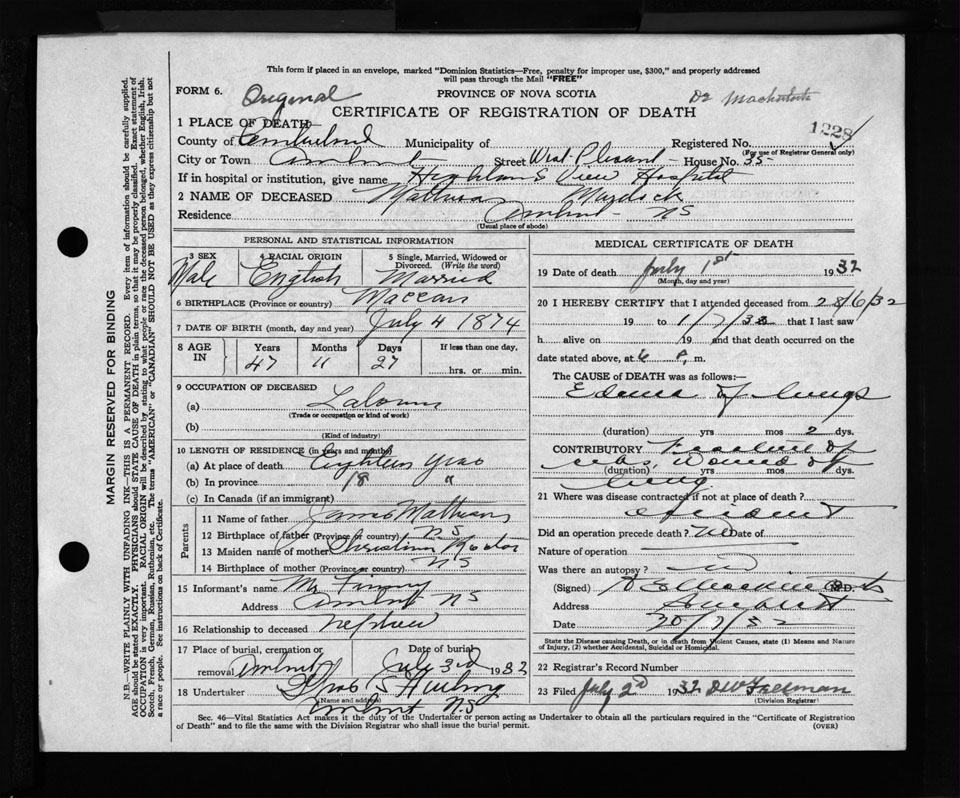 This form if placed in an envelope, marked "Dominion Statistics—Free, penalty for improper use, $300," and properly addressed
will pass through the Mail "FREE"
FORM 6. Original PROVINCE OF NOVA SCOTIA Dr
CERTIFICATE OF REGISTRATION OF DEATH
1 PLACE OF DEATH 1228
County of Cumberland Municipality of Registered No.
(For use of Registrar General only)
City or Town Amherst Street West Pleasant House No. 35
If in hospital or institution, give name Highland View Hospital
2 NAME OF DECEASED Murdock
Residence Amherst NS
(Usual place of abode)
PERSONAL AND STATISTICAL INFORMATION
3 SEX 4 RACIAL ORIGIN 5 Single, Married, Widowed or
Divorced. (Write the word)
Male English Married
6 BIRTHPLACE (Province or country) Maccan
7 DATE OF BIRTH (month, day and year) July 4 1874
8 AGE IN Years Months Days If less than one day,
47 11 27 hrs. or min.
9 OCCUPATION OF DECEASED
(a) Labourer
(Trade or occupation or kind of work)
(b)
(Kind of industry)
10 LENGTH OF RESIDENCE (in years and months)
(a) At place of death Eighteen years
(b) In province 18 "
(c) In Canada (if an immigrant)
Parents
11 Name of father James
12 Birthplace of father (Province or country) NS
13 Maiden name of mother Christina
14 Birthplace of mother (Province or country) NS
15 Informant's name Mr
Address Amherst NS
16 Relationship to deceased nephew
17 Place of burial, cremation or Date of burial
removal Amherst July 3rd 1932
18 Undertaker
(Name and address)
Amherst N.S
MEDICAL CERTIFICATE OF DEATH
19 Date of death July 1st 1932
(Month, day and year)
20 I HEREBY CERTIFY that I attended deceased from 28/6/32
19 to 1/7/32 that I last saw
h alive on 19 and that death occurred on the
date stated above, at 6 P. m.
The CAUSE of DEATH was as follows:
Edema of lungs
(duration) yrs mos 2 dys.
CONTRIBUTORY Fracture of
ribs, wound of
(duration) yrs mos dys.
lung
21 Where was disease contracted if not at place of death?
accident
Did an operation precede death? No Date of
Nature of operation
Was there an autopsy? no
(Signed) M.D.
Address Amherst
Date 30/7/32
State the Disease causing Death, or in death from Violent Causes, state (1) Means and Nature
of Injury, (2) whether Accidental, Suicidal or Homicidal.
22 Registrar's Record Number
23 Filed July 2d 1932 Freeman
(Division Registrar)
Sec. 46—Vital Statistics Act makes it the duty of the Undertaker or person acting as Undertaker to obtain all the particulars required in the "Certificate of Registration
of Death" and to file the same with the Division Registrar who shall issue the burial permit. (OVER)
MARGIN RESERVED FOR BINDING
N.B.—WRITE PLAINLY WITH UNFADING INK—THIS IS A PERMANENT RECORD. Every item of information should be carefully supplied.
AGE should be stated EXACTLY. PHYSICIANS should STATE CAUSE OF DEATH in plain terms, so that it may be properly classified. Exact statement of
OCCUPATION is very important. RACIAL ORIGIN will be described by stating to what people or race the deceased person belonged, whether English, Irish,
Scotch, French, German, Russian, Ruthenian, etc. The terms "AMERICAN" or "CANADIAN" SHOULD NOT BE USED as they express citizenship but not
a race or people. See instructions on back of Certificate.